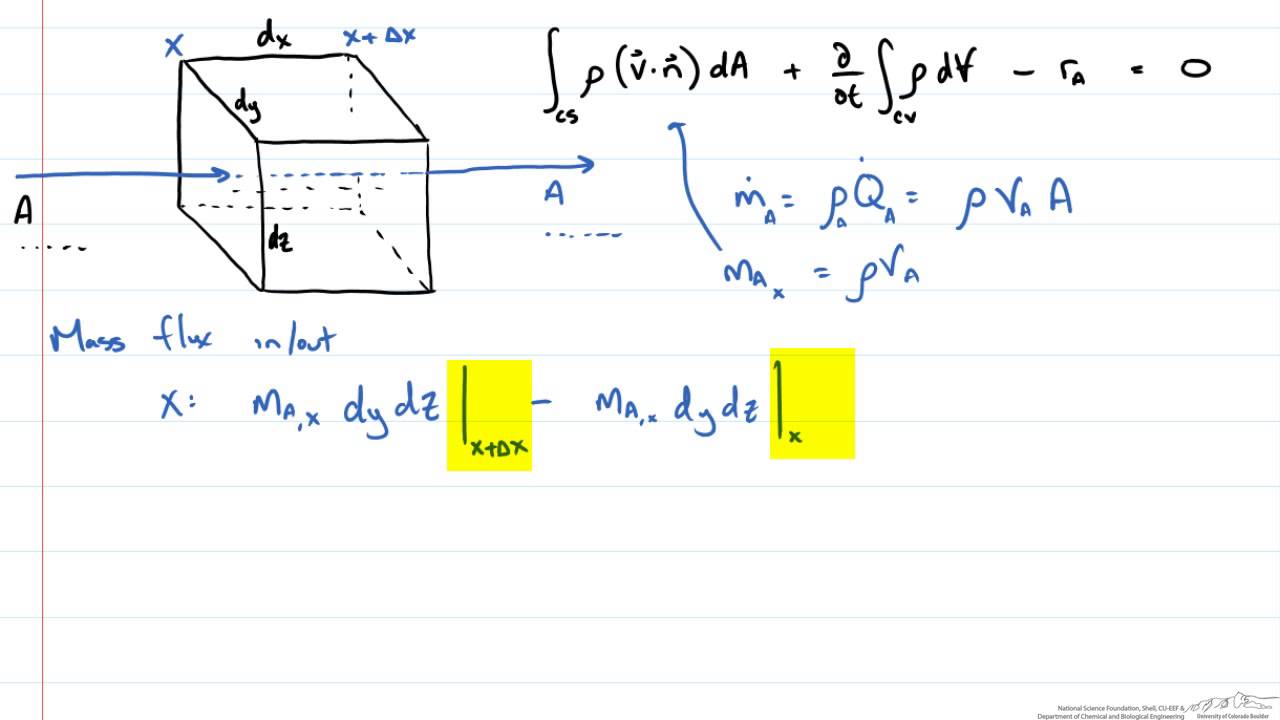 x dx x+Δx
dy
dz
A
A
∫cs ρ(v⃗·n⃗)dA + ∂/∂t ∫cv ρ dV̶ - rA = 0
ṁA = ρA Q̇A = ρ VA A
mAx = ρVA
Mass flux in/out
x: mA,x dy dz |x+Δx - mA,x dy dz |x
National Science Foundation, Shell, CU-EEF &
Department of Chemical and Biological Engineering
University of Colorado Boulder